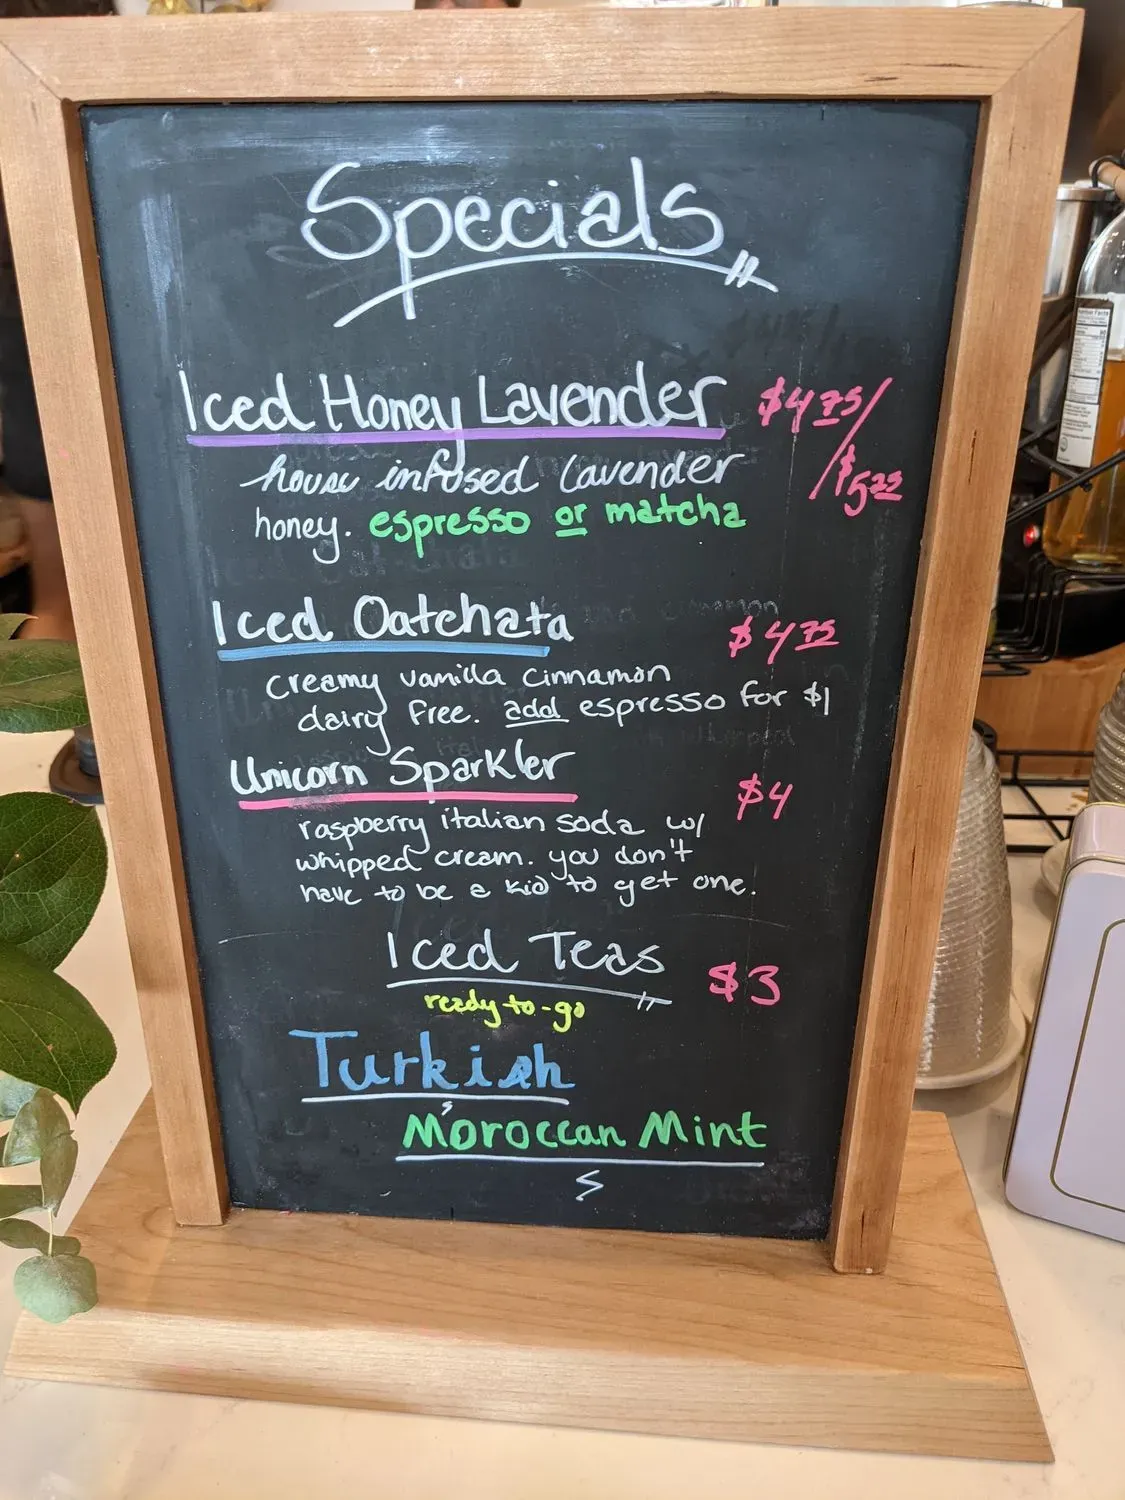 Specials
Iced Honey Lavender $4.75/
house infused lavender
honey. espresso or matcha
Iced Oatchata $4.75
creamy vanilla cinnamon
dairy free. add espresso for $1
Unicorn Sparkler $4
raspberry italian soda w/
whipped cream. you don't
have to be a kid to get one.
Iced Teas $3
ready-to-go
Turkish
Moroccan Mint
Nutrition Facts